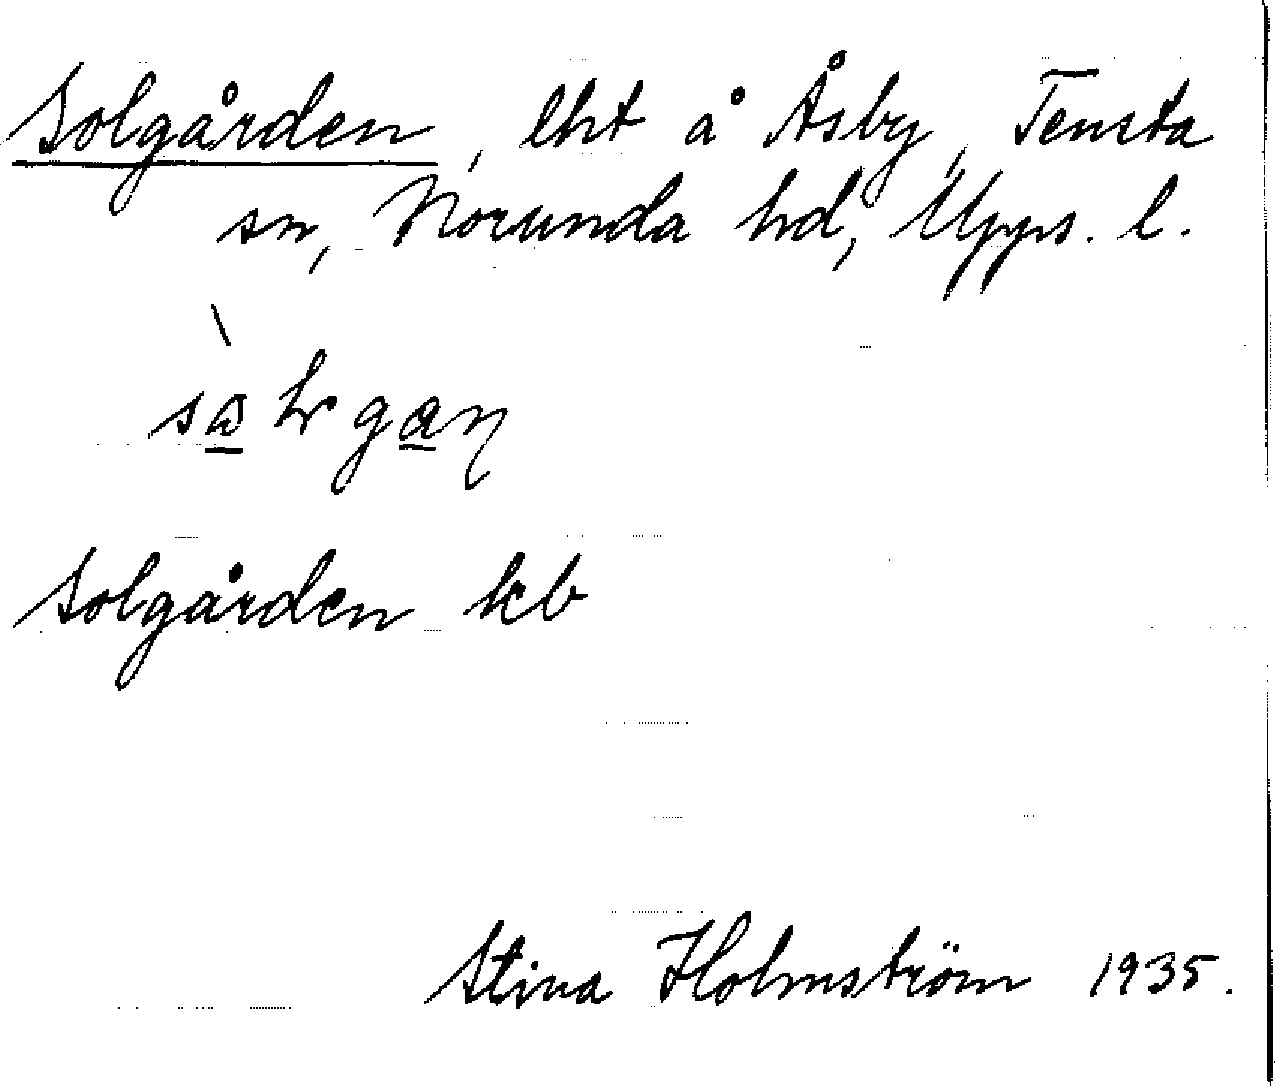 Solgården, lht å Åsby, Tensta
sn, Norunda hd, Upps. l.
Solgården kb
Stina Holmström 1935.